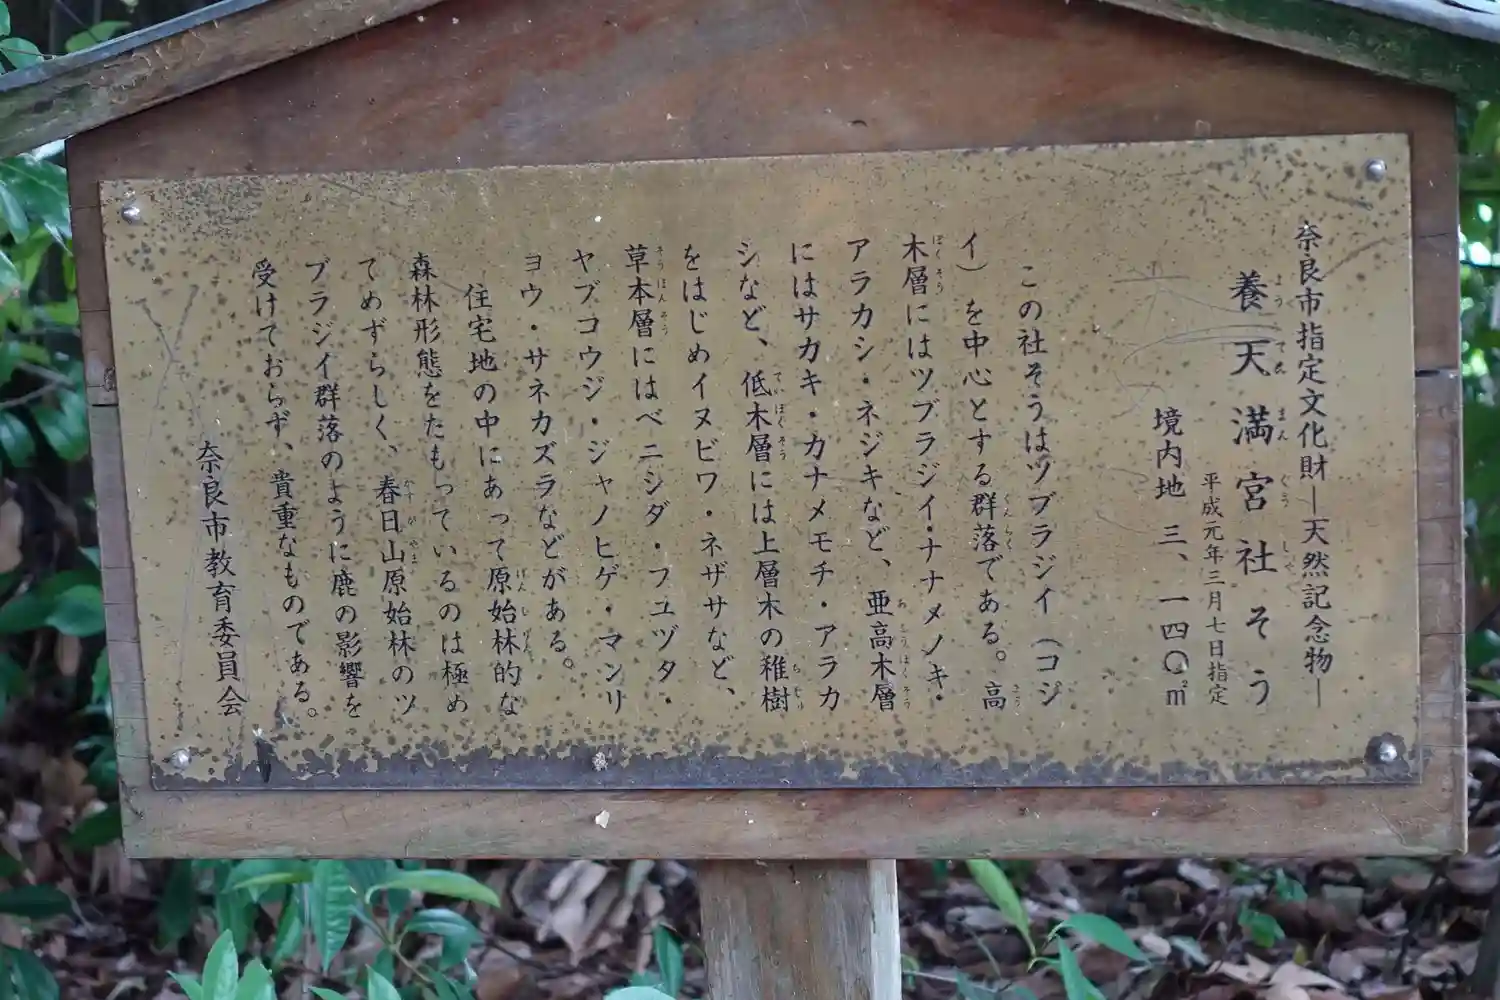 奈良市指定文化財―天然記念物―
養天満宮社そう
平成元年三月七日指定
境内地 三、一四〇㎡
この社そうはツブラジイ(コジ
イ)を中心とする群落である。高
木層にはツブラジイ・ナナメノキ・
アラカシ・ネジキなど、亜高木層
にはサカキ・カナメモチ・アラカ
シなど、低木層には上層木の稚樹
をはじめイヌビワ・ネザサなど、
草本層にはベニシダ・フユヅタ・
ヤブコウジ・ジャノヒゲ・マンリ
ョウ・サネカズラなどがある。
住宅地の中にあって原始林的な
森林形態をたもっているのは極め
てめずらしく、春日山原始林のツ
ブラジイ群落のように鹿の影響を
受けておらず、貴重なものである。
奈良市教育委員会